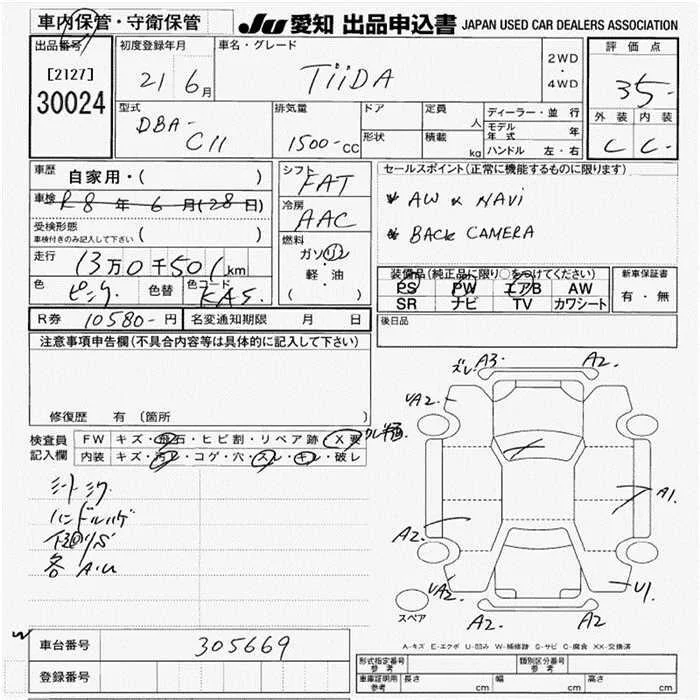 車内保管・守衛保管
JU 愛知 出品申込書 JAPAN USED CAR DEALERS ASSOCIATION
出品番号
[2127]
30024
初度登録年月
21 6月
車名・グレード
TiiDA
2WD
・
4WD
評価点
35-
外装 内装
C C-
型式
DBA-
C11
排気量
1500-CC
ドア
形状
定員
人
積載
kg
ディーラー・並行
モデル年式 年
ハンドル 左・右
車歴
自家用・( )
車検
R8年6月(28日)
受検形態
車検付きのみ記入して下さい ( )
走行
13万0千501km
色
ピンク.
色替
色コード
KAS.
シフト
FAT
冷房
AAC
燃料
ガソリン
・
軽・油
( )
セールスポイント(正常に機能するものに限ります)
* AW x NAVi
* BACK CAMERA
装備品(純正品に限り○をつけてください)
PS PW エアB AW
SR ナビ TV カワシート
新車保証書
有・無
後日品
R券 10580-円 名変通知期限 月 日
注意事項申告欄(不具合内容等は具体的に記入して下さい)
修復歴 有 (箇所 )
検査員
記入欄
FW キズ・飛石・ヒビ割・リペア跡・X要
内装 キズ・汚レ・コゲ・穴・スレ・キレ・破レ
シートシワ.
ハンドルハゲ
各 A.U
ズレ A3. A2.
UA2.
A1.
A2.
UA2. U1.
A2. A2.
スペア
A-キズ E-エクボ U-凹み W-補修跡 S-サビ C-腐食 XX-交換済
車台番号
305669
登録番号
形式指定番号
参考
類別区分番号
参考
車庫証明用
参考
長さ cm 幅 cm 高さ cm